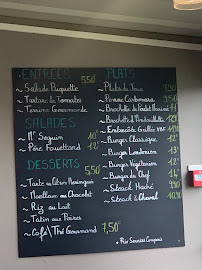 ENTRÉES 5,50
~ Salade Piquette
~ Tartare de Tomates
~ Terrine Gourmande
SALADES
~ Mr Seguin 10'
~ Père Fouettard 12'
DESSERTS 5,50
~ Tarte au Citron Meringuée
~ Moelleux au Chocolat
~ Riz au Lait
~ Tatin aux Poires
~ Café/Thé Gourmand 7,50
PLATS
~ Plats du Jour 9,50
~ Penne Carbonara
~ Brochette de Poulet Mariné
~ Brochette d'Andouillette
~ Entrecôte Grillée
~ Burger Classique
~ Burger Londonien
~ Burger Vegetarien
~ Burger du Chef
~ Steack Haché
~ Steack à Cheval
Prix Services Compris